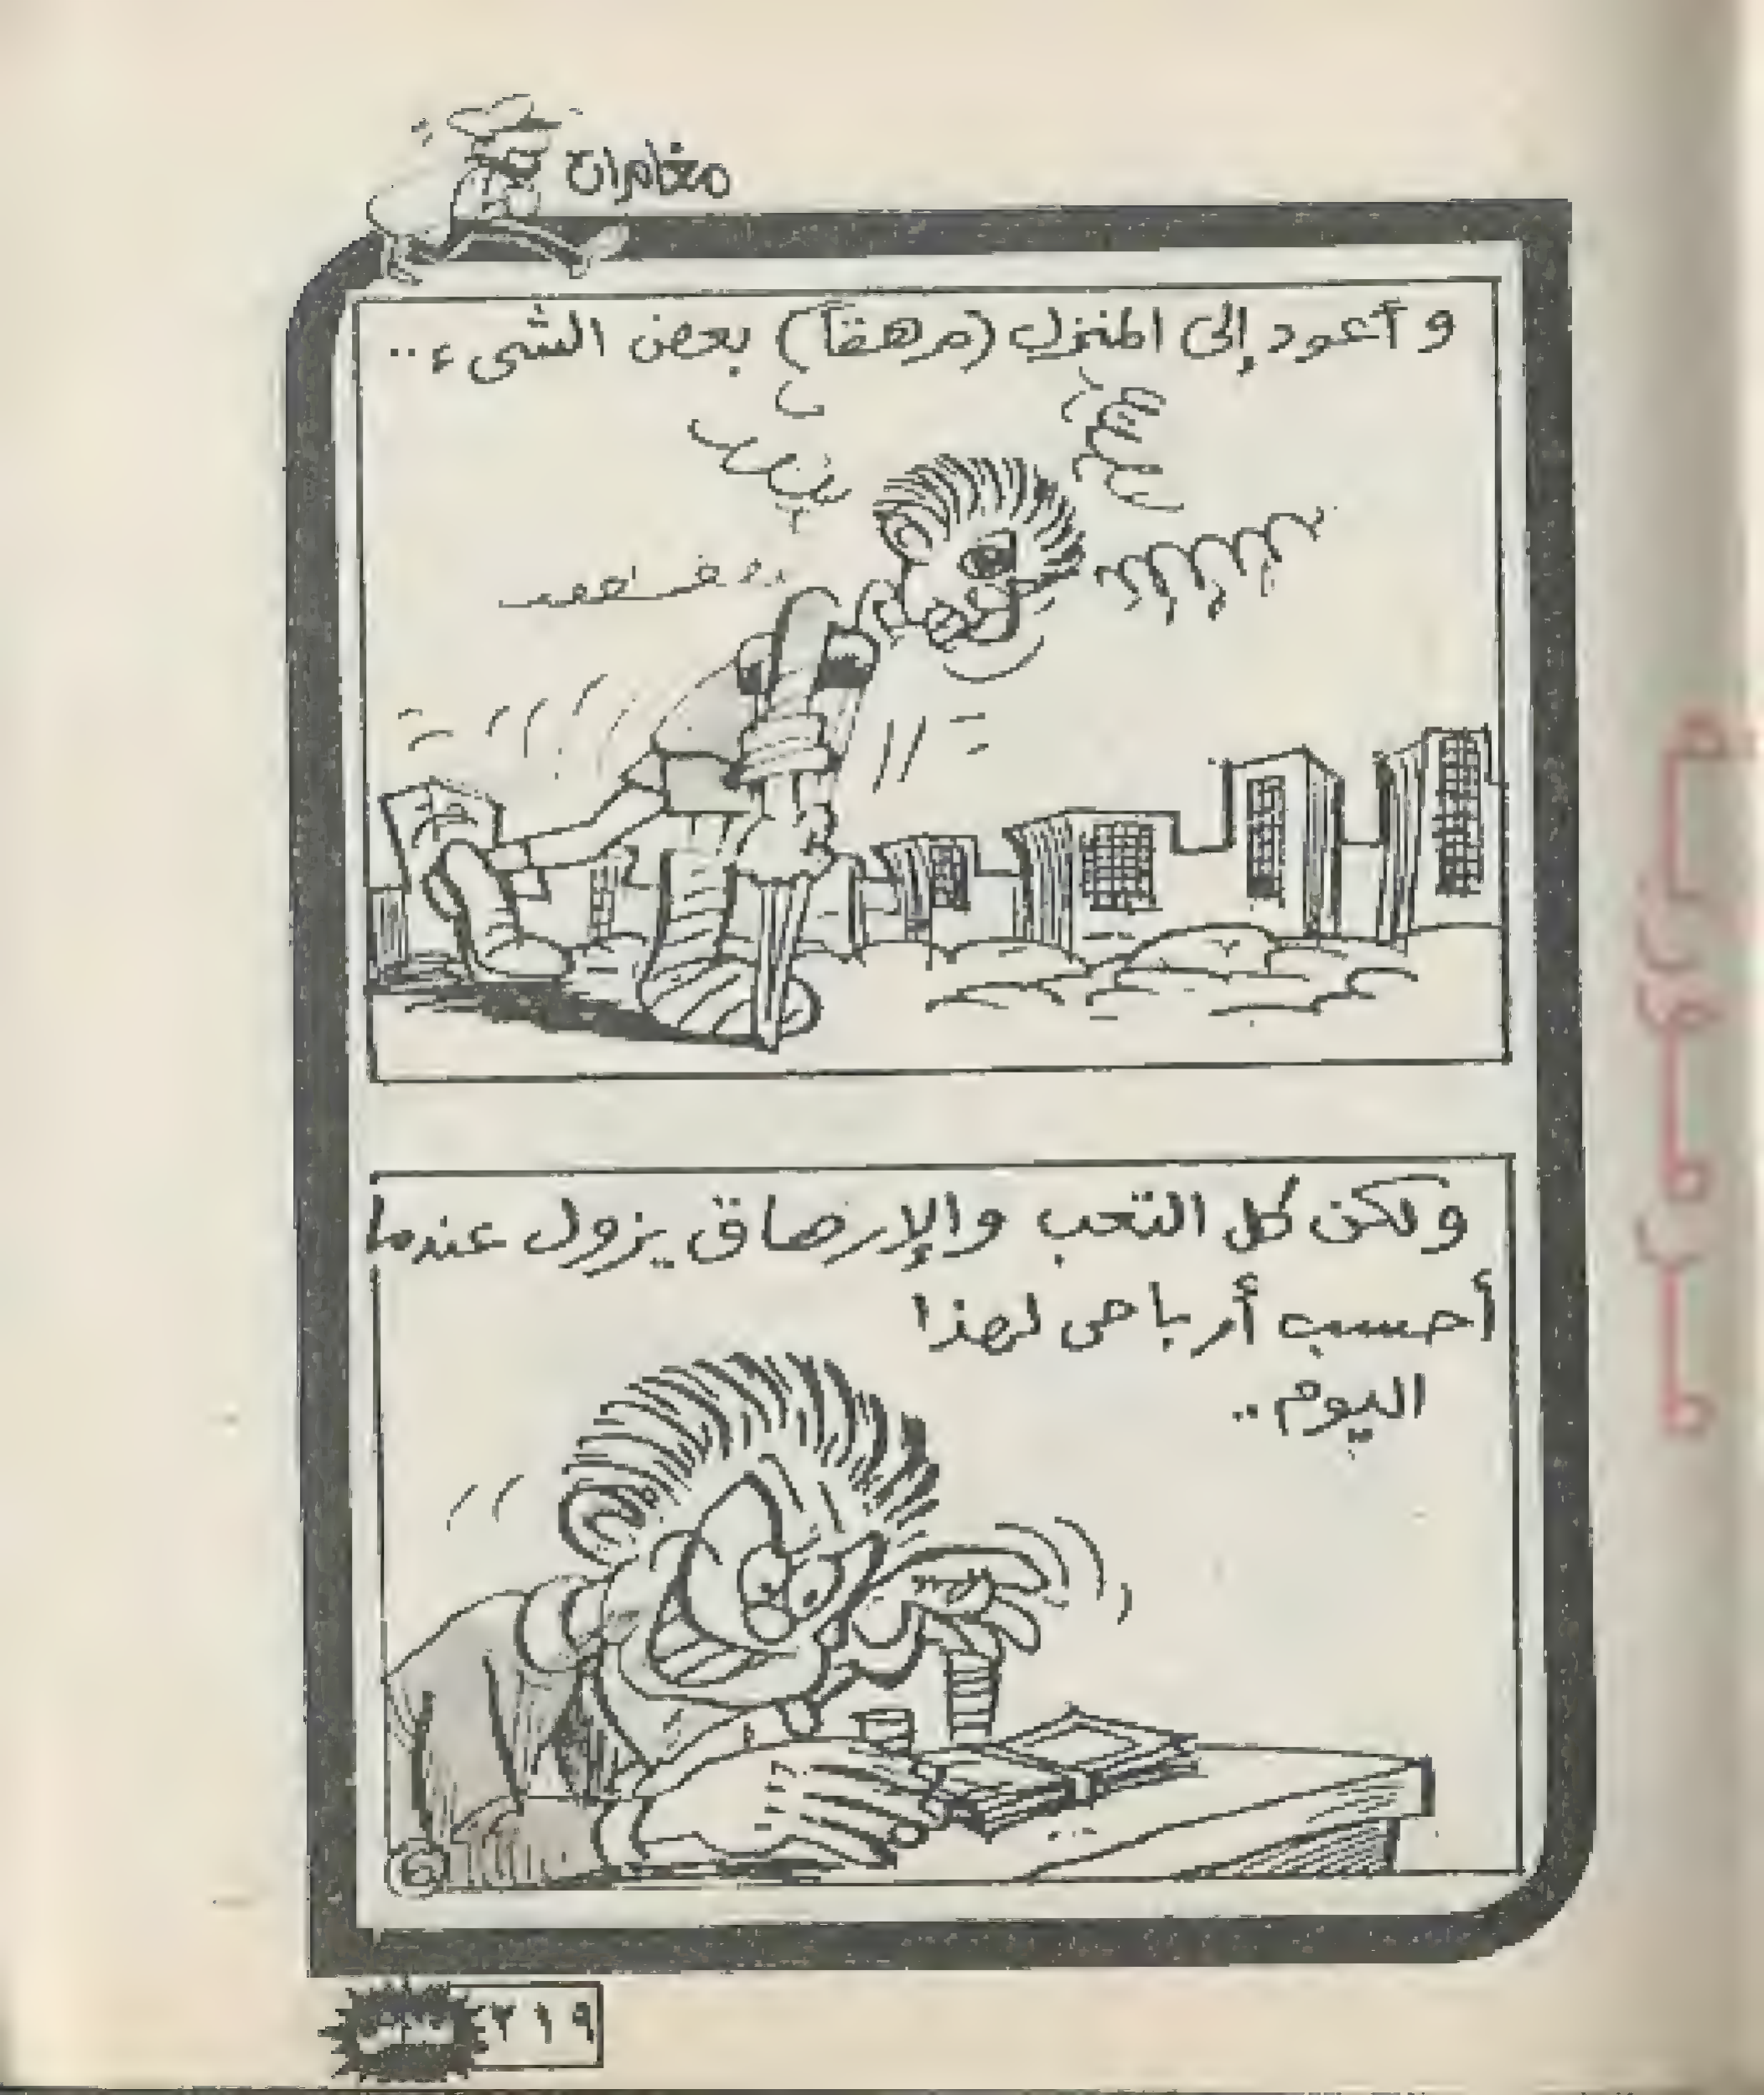 مغامرات
وأعود إلى المنزل (مرهقاً) بعض الشىء..
ولكن كل التعب والإرهاق يزول عندما
أحسب أرباحى لهذا
اليوم..
٢١٩